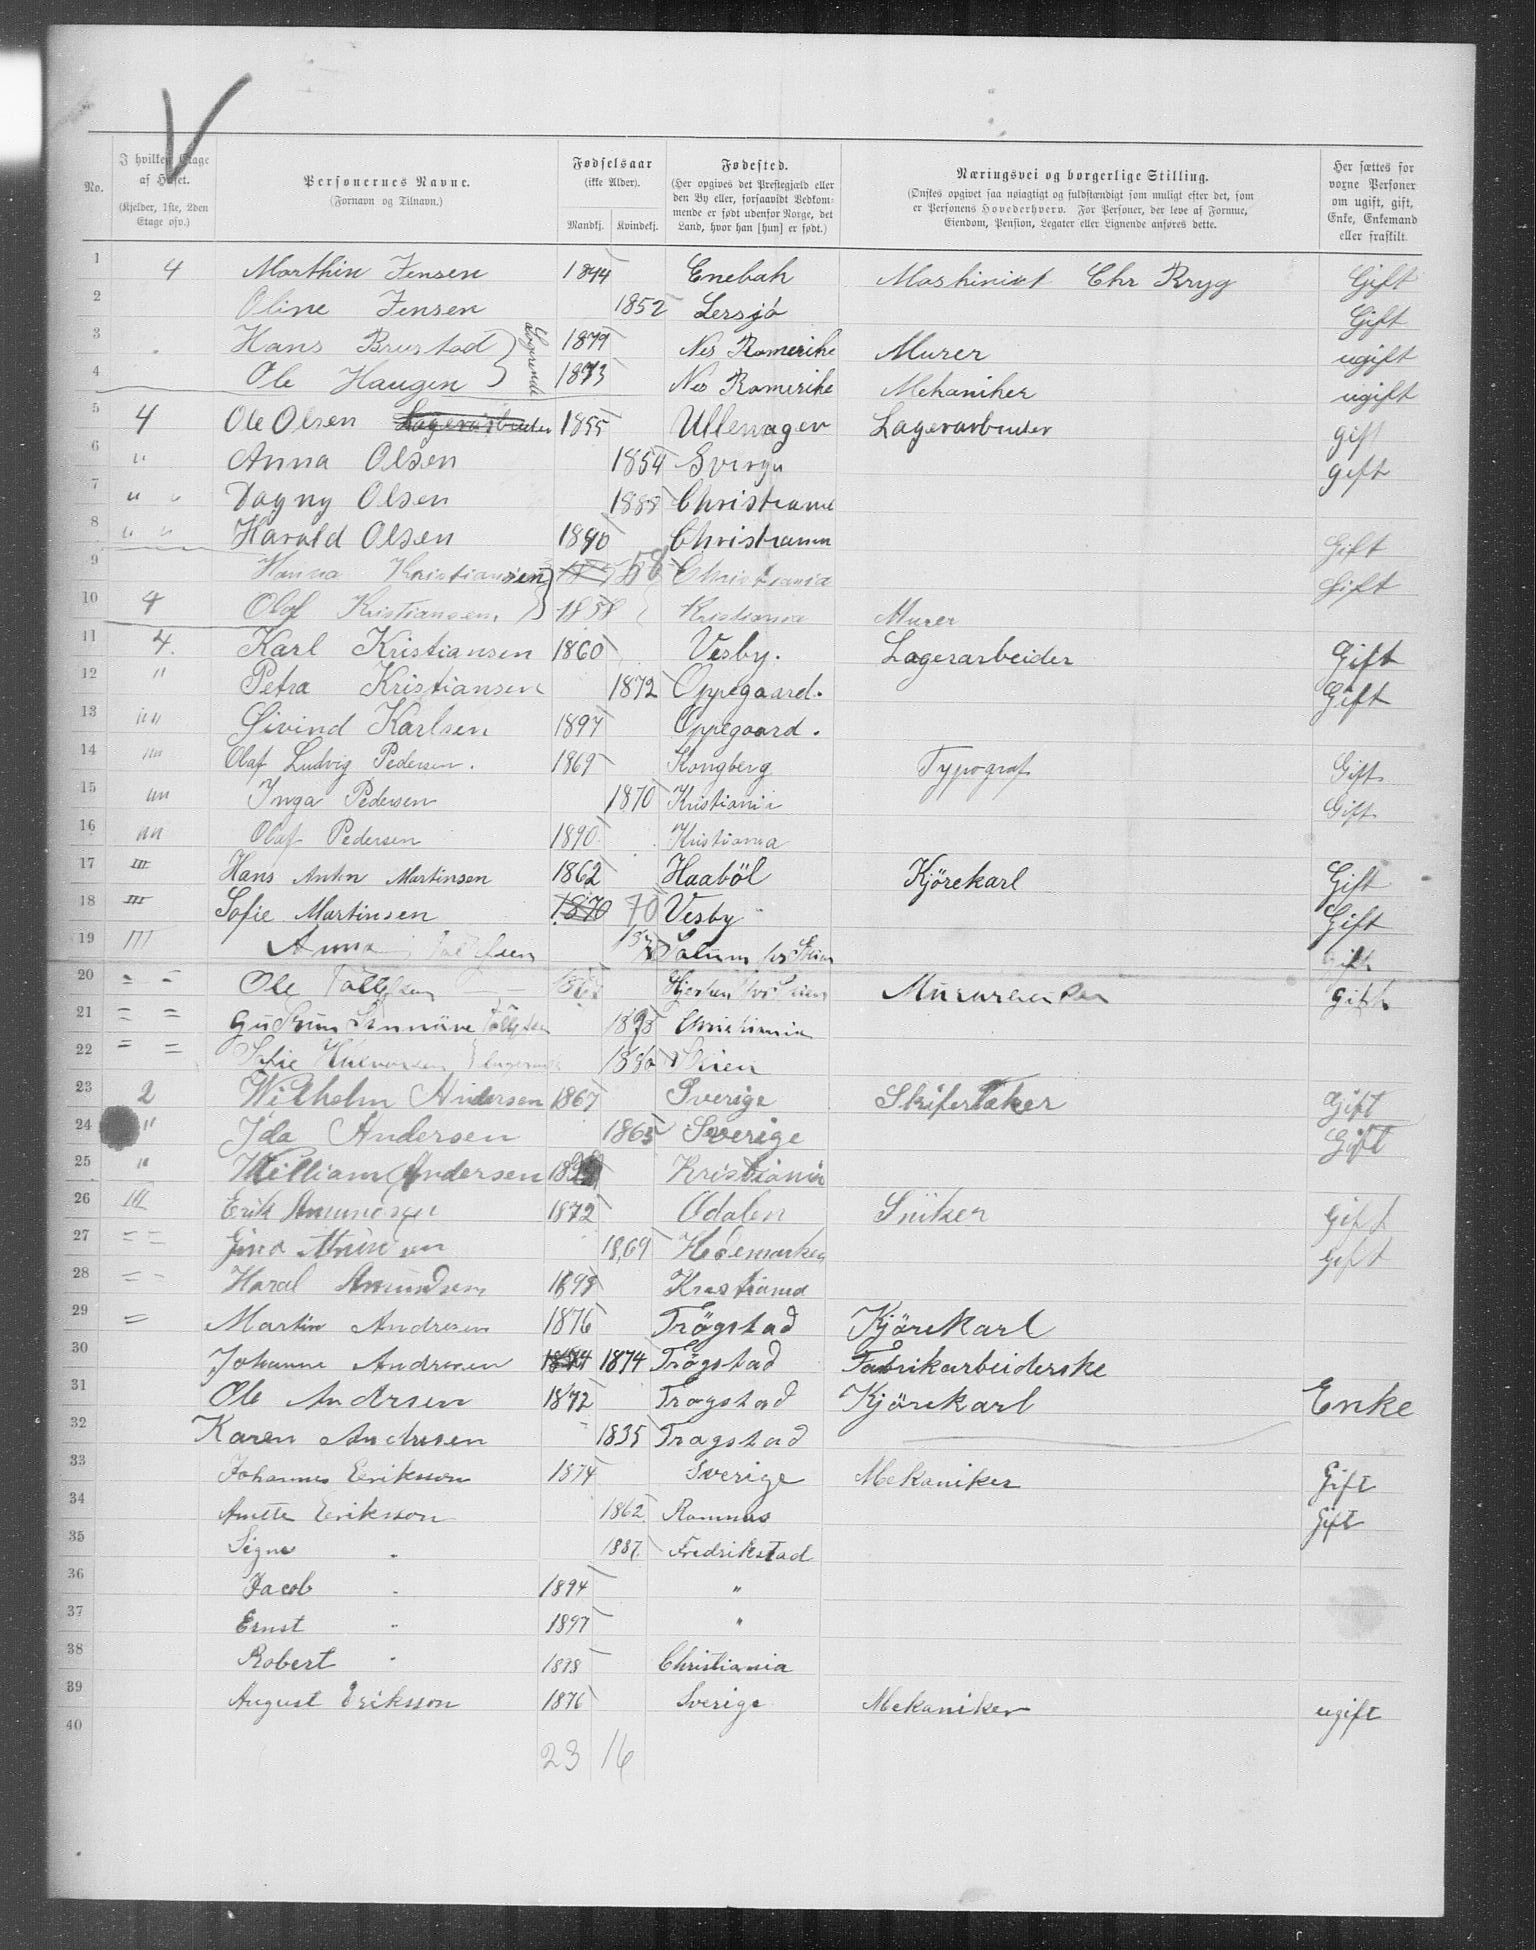 No. | I hvilken Etage af Huset. (Kjelder, 1ste, 2den Etage osv.) | Personernes Navne. (Fornavn og Tilnavn.) | Fødselsaar (ikke Alder). Mandkj. Kvindekj. | Fødested. (Her opgives det Prestegjæld eller den By eller, forsaavidt Vedkommende er født udenfor Norge, det Land, hvor han [hun] er født.) | Næringsvei og borgerlige Stilling. (Ønskes opgivet saa nøiagtigt og fuldstændigt som muligt efter det, som er Personens Hovederhverv. For Personer, der leve af Formue, Eiendom, Pension, Legater eller Lignende anføres dette. | Her sættes for vorne Personer om ugift, gift, Enke, Enkemand eller fraskilt.
1 4 Marthin Jensen 1844 Enebak Maskinist Chr Bryg Gift
2 Oline Jensen 1852 Lersjö Gift
3 Hans Brustad Logerende 1879 Nes Romerike Murer ugift
4 Ole Haugen 1873 Nes Romerike Mekaniker ugift
5 4 Ole Olsen Lagerarbeider 1855 Ullensager Lagerarbeider gift
6 " Anna Olsen 1854 Sverge gift
7 " " Dagny Olsen 1888 Christiania
8 " " Harald Olsen 1890 Christiania Gift
9 Hanna Kristiansen 58 Christiania Gift
10 4 Olaf Kristiansen 1858 Kristiania Murer
11 4. Karl Kristiansen 1860 Vesby. Lagerarbeider Gift
12 " Petra Kristiansen 1872 Oppegaard. Gift
13 "" Øivind Karlsen 1897 Oppegaard.
14 "" Olaf Ludvig Pedersen. 1869 Kongberg Typograf Gift
15 "" Inga Pedersen 1870 Kristiania Gift
16 "" Olaf Pedersen 1890 Kristiania
17 III Hans Anton Martinsen 1862 Haaböl Kjörekarl Gift
18 III Sofie Martinsen 1870 70 Vesby Gift
19 III Anna Solum Gift
20 = = Ole Gift
21 = = Gudrun 1895 Christiania
22 = = Sofie 1880 Skien
23 2 Wilhelm Andersen 1867 Sverige Skifertæker Gift
24 " Ida Andersen 1865 Sverige Gift
25 " William Andersen Kristiania
26 III Erik Amundsen 1872 Odalen Sniker Gift
27 = = 1869 Gift
28 = - Haral Amundsen 1898 Kristiania
29 = Martin Andresen 1876 Trögstad Kjörekarl
30 Johanne Andresen 1874 1874 Trögstad Fabrikarbeiderske
31 Ole Andrsen 1872 Trogstad Kjörekarl Enke
32 Karen Andresen 1835 Tragstad
33 Johannes Eeriksson 1874 Sverige Mekaniker Gift
34 Anette Eeriksson 1862 Romnes Gift
35 Signe " 1887. Fredrikstad
36 Jacob " 1894 "
37 Ernst " 1897 "
38 Robert " 1898 Christiania
39 August Eriksson 1876 Sverige Mekaniker ugift
40
23 16